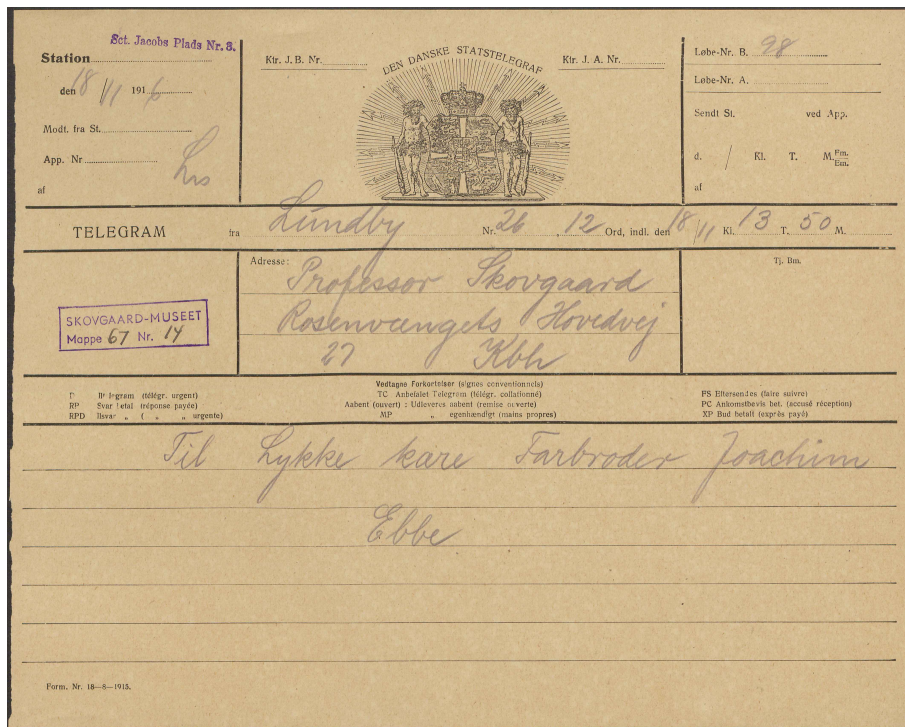 Sct. Jacobs Plads Nr. 3.
Station
den 18/11 1916
Modt. fra St.
App. Nr
af
Ktr. J. B. Nr.
DEN DANSKE STATSTELEGRAF
Ktr. J. A. Nr.
Løbe-Nr. B. 98
Løbe-Nr. A.
Sendt St. ved App.
d. / Kl. T. M. Fm. Em.
af
TELEGRAM fra Lundby Nr. 26, 12 Ord, indl. den 18/11 Kl. 13 T. 50 M.
Adresse:
Professor Skovgaard
Rosenvængets Hovedvej
27 Kbh
Tj. Bm.
SKOVGAARD-MUSEET
Mappe 67 Nr. 14
Vedtagne Forkortelser (signes conventionnels)
D Il telegram (télégr. urgent)
RP Svar betal (réponse payée)
RPD Ilsvar „ ( „ „ urgente)
TC Anbefalet Telegram (télégr. collationné)
Aabent (ouvert) : Udleveres aabent (remise ouverte)
MP „ egenhændigt (mains propres)
FS Eftersendes (faire suivre)
PC Ankomstbevis bet. (accusé réception)
XP Bud betalt (exprès payé)
Til Lykke kare Farbroder Joachim
Ebbe
Form. Nr. 18—8—1915.